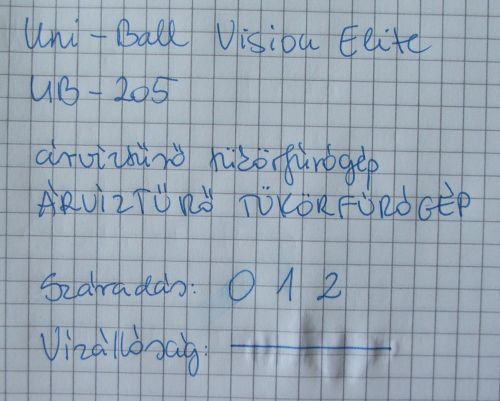 Uni-Ball Vision Elite
UB-205
árvíztűrő tükörfúrógép
ÁRVÍZTŰRŐ TÜKÖRFÚRÓGÉP
Száradás: 0 1 2
Vízállóság: